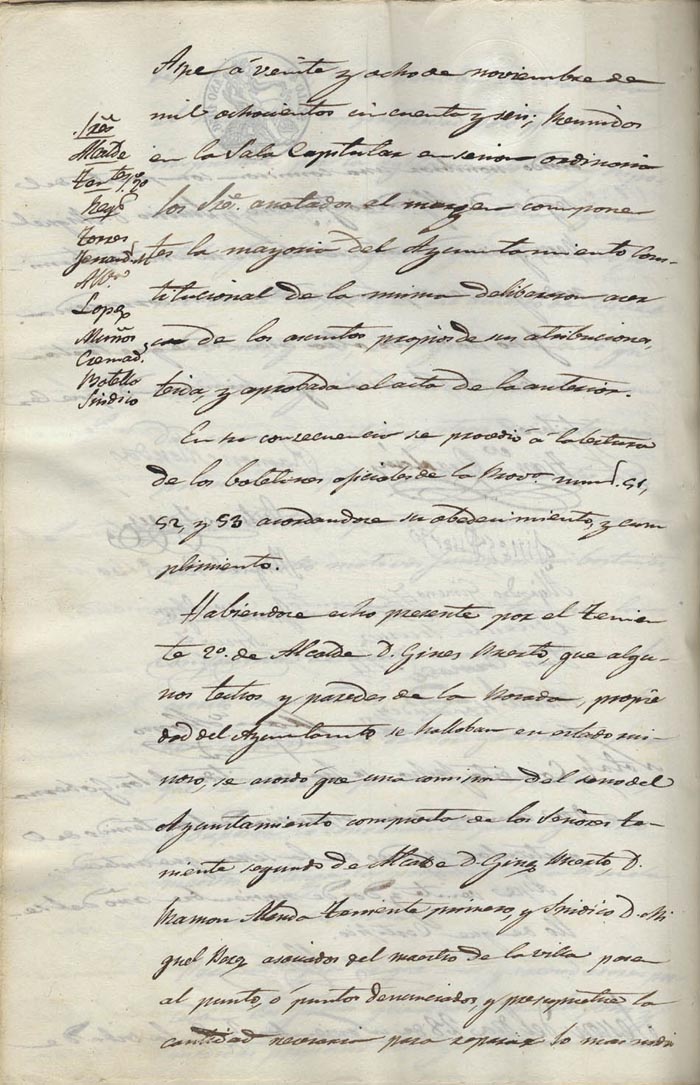 Sres
Alcalde
Tentes 1º 2º
Regs
Torres
Lopez
Muños
Cremads
Botella
Sindico
Aspe á veinte y ocho de noviembre de
mil ochocientos cincuenta y seis; Reunidos
en la Sala Capitular en sesion ordinaria
los Sres. anotados al margen componen
tes la mayoria del Ayuntamiento Cons-
titucional de la misma deliberaron acer
ca de los asuntos propios de sus atribuciones,
leida, y aprobada el acta de la anterior.
En su consecuencia se procedió á la lectura
de los boletines oficiales de la Prova. nums. 51,
52, y 53 acordandose su obedecimiento, y cum
plimiento.
Habiendose echo presente por el Tenien
te 2º. de Alcalde D. Gines Puerto, que algu-
nos techos y paredes de la Posada, propie
dad del Ayuntamto se hallaban en estado rui-
noso, se acordó que una comision del seno del
Ayuntamiento compuesta de los Señores te-
niente segundo de Alcalde D. Gines Puerto, D.
Ramon Almda Teniente primero, y Sindico D. Mi
guel asociados del maestro de la villa pasen
al punto, ó puntos denunciados, y presupueste la
cantidad necesaria para reparar lo mas